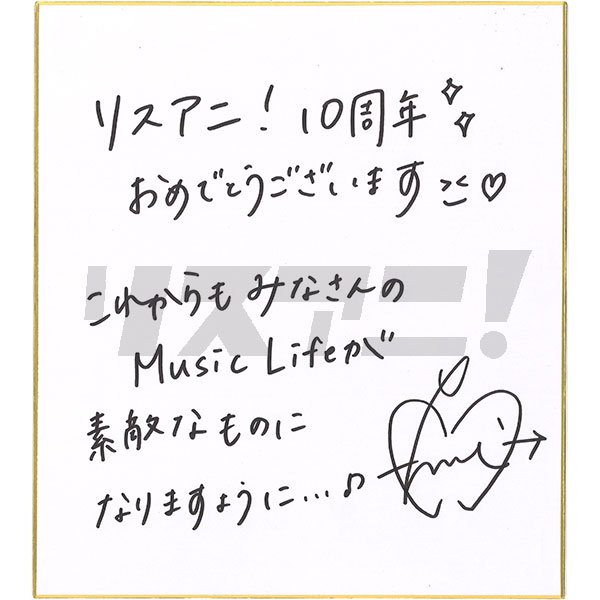 リスアニ！10周年
おめでとうございます♡
リスアニ！
これからもみなさんの
Music Lifeが
素敵なものに
なりますように…♪